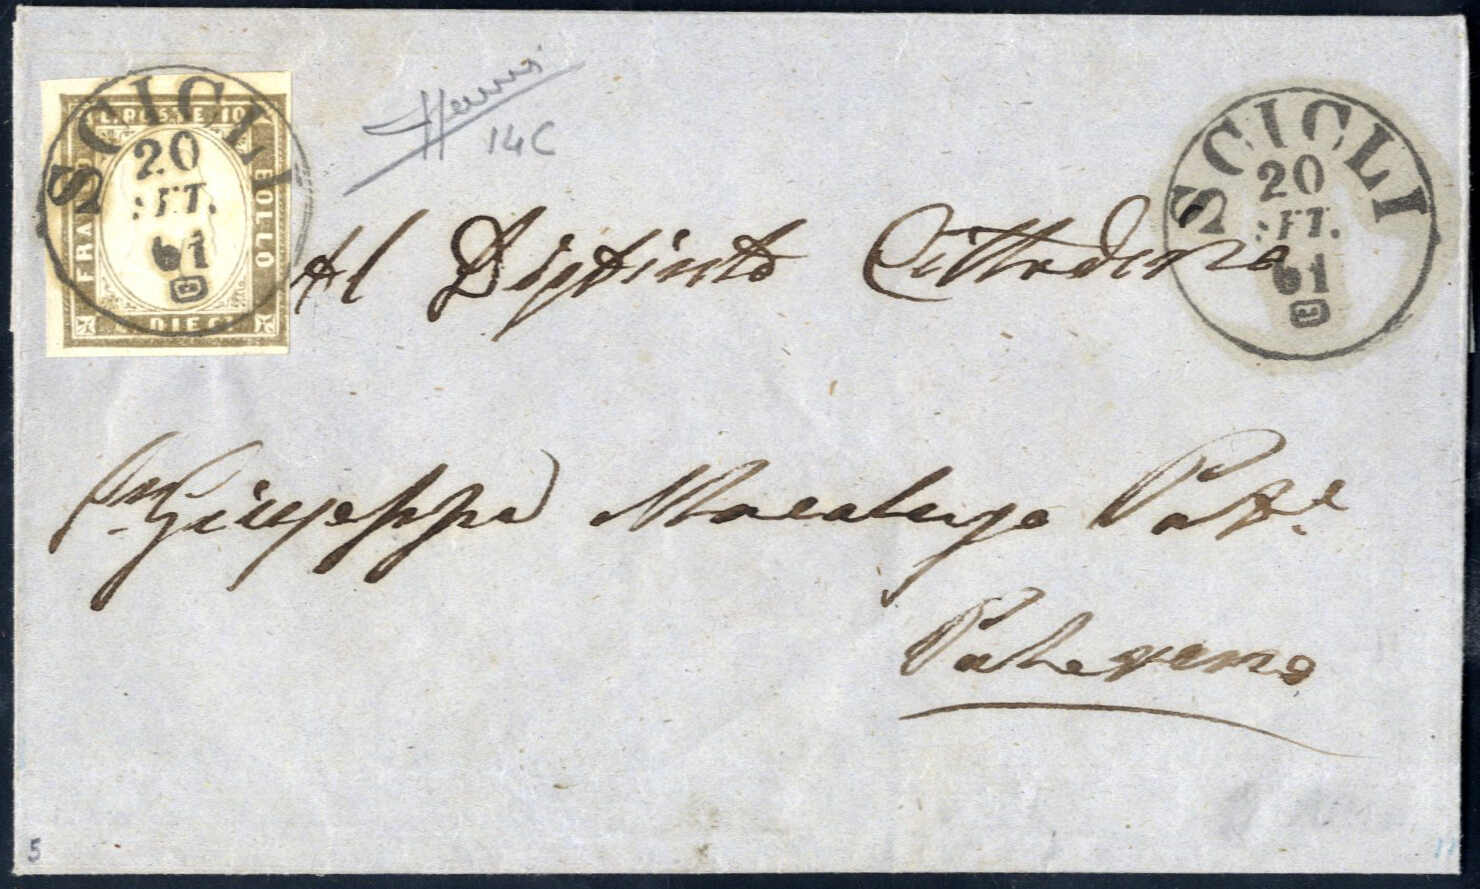 C. POSTE 10
FRANCO
BOLLO
C. DIECI
SCICLI
20
SET.
61
14C
SCICLI
20
SET.
61
Al Distinto Cittadino
Giuseppe Macaluso
Palermo
5